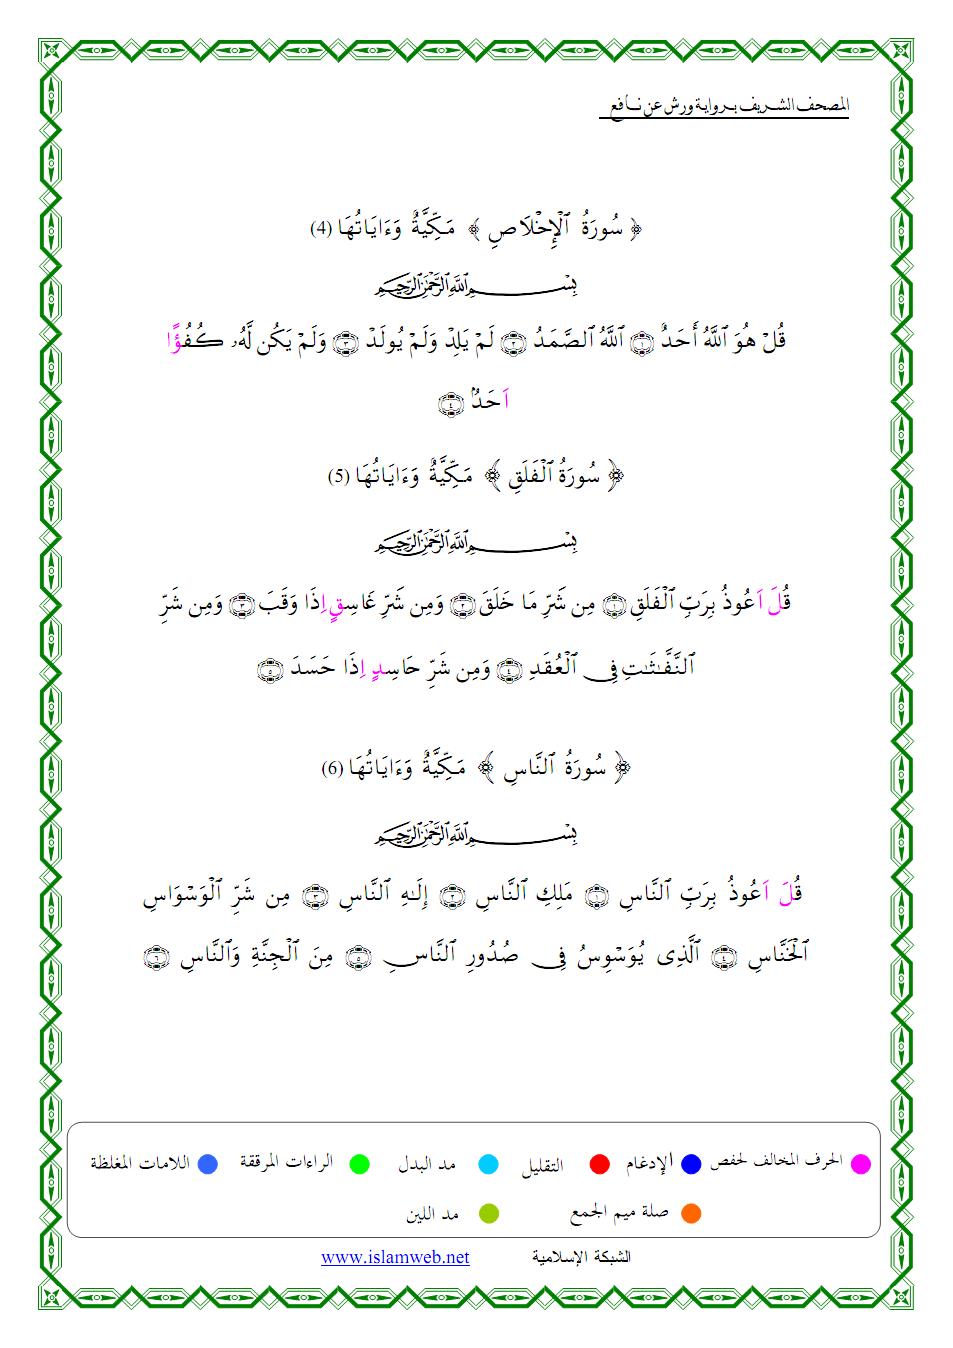 المصحف الشريف برواية ورش عن نافع
﴿ سُورَةُ ٱلْإِخْلَاصِ ﴾ مَكِّيَّةٌ وَءَايَاتُهَا (4)
بِسْمِ ٱللَّهِ ٱلرَّحْمَٰنِ ٱلرَّحِيمِ
قُلْ هُوَ ٱللَّهُ أَحَدٌ ۝١ ٱللَّهُ ٱلصَّمَدُ ۝٢ لَمْ يَلِدْ وَلَمْ يُولَدْ ۝٣ وَلَمْ يَكُن لَّهُۥ كُفُؤًا
اَحَدٌۢ ۝٤
﴿ سُورَةُ ٱلْفَلَقِ ﴾ مَكِّيَّةٌ وَءَايَاتُهَا (5)
بِسْمِ ٱللَّهِ ٱلرَّحْمَٰنِ ٱلرَّحِيمِ
قُلَ اَعُوذُ بِرَبِّ ٱلْفَلَقِ ۝١ مِن شَرِّ مَا خَلَقَ ۝٢ وَمِن شَرِّ غَاسِقٍ اِذَا وَقَبَ ۝٣ وَمِن شَرِّ
ٱلنَّفَّٰثَٰتِ فِى ٱلْعُقَدِ ۝٤ وَمِن شَرِّ حَاسِدٍ اِذَا حَسَدَ ۝٥
﴿ سُورَةُ ٱلنَّاسِ ﴾ مَكِّيَّةٌ وَءَايَاتُهَا (6)
بِسْمِ ٱللَّهِ ٱلرَّحْمَٰنِ ٱلرَّحِيمِ
قُلَ اَعُوذُ بِرَبِّ ٱلنَّاسِ ۝١ مَلِكِ ٱلنَّاسِ ۝٢ إِلَٰهِ ٱلنَّاسِ ۝٣ مِن شَرِّ ٱلْوَسْوَاسِ
ٱلْخَنَّاسِ ۝٤ ٱلَّذِى يُوَسْوِسُ فِى صُدُورِ ٱلنَّاسِ ۝٥ مِنَ ٱلْجِنَّةِ وَٱلنَّاسِ ۝٦
الحرف المخالف لحفص الإدغام التقليل مد البدل الراءات المرققة اللامات المغلظة
صلة ميم الجمع مد اللين
الشبكة الإسلامية www.islamweb.net